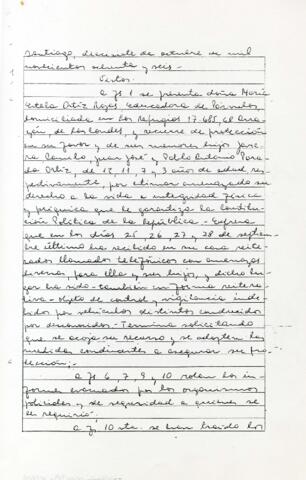 Santiago, diecisiete de octubre de mil
novecientos ochenta y seis.
Vistos:
A fs 1 se presenta doña María
Estela Ortiz Rojas, Educadora de Párvulos,
domiciliada en Los Refugios 17.685,
de Las Condes, y recurre de protección
en su favor y de sus menores hijos Javie-
ra Camilo, Juan José y Pablo Antonio Para-
da Ortiz, de 7 y 3 años de edad res-
pectivamente, por estimar amenazado su
derecho a la vida e integridad física
y psíquica que le garantiza la Constitu-
ción Política de la República. Expresa
que en los días 25, 26, 27 y 28 de septiem-
bre último ha recibido en su casa reite-
rados llamados telefónicos con amenazas
diversas para ella y sus hijos, y dicho ho-
gar ha sido también en forma reitera-
tiva objeto de control y vigilancia inde-
bidos por vehículos distintos conducidos
por desconocidos. Termina solicitando
que se acoja su recurso y se adopten las
medidas conducentes a asegurar su pro-
tección;
A fs 6, 7, 9, 10 rolan los in-
formes evacuados por los organismos
policiales y de seguridad a quienes se
les requirió;
A fs 10 vta. se han traído los